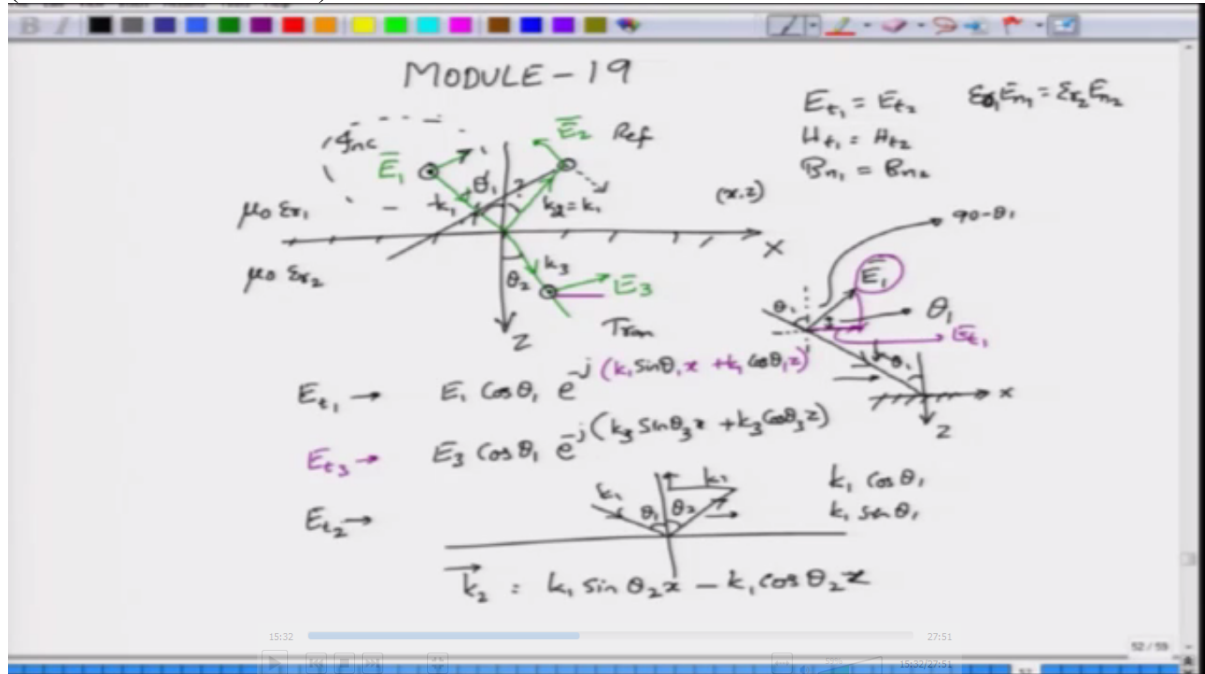 MODULE - 19
Et1 = Et2
Ht1 = Ht2
Bn1 = Bn2
Inc
E̅1
E̅2
Ref
θ1
?
k1
k2 = k1
(x.z)
μ0 εr1
μ0 εr2
X
θ2
k3
E̅3
Z
Tran
90-θ1
E̅1
θ1
θ1
Et1
θ1
x
Z
Et1 → E1 Cosθ1 e^-j(k1 sinθ1x + k1 cosθ1z)
Et3 → E3 Cosθ1 e^-j(k3 sinθ3x + k3 cosθ3z)
Et2 →
k1
θ1
θ2
k1
k1 cosθ1
k1 sinθ1
k2 = k1 sinθ2x - k1 cosθ2z
15:32
27:51
52 / 59
15:32/27:51